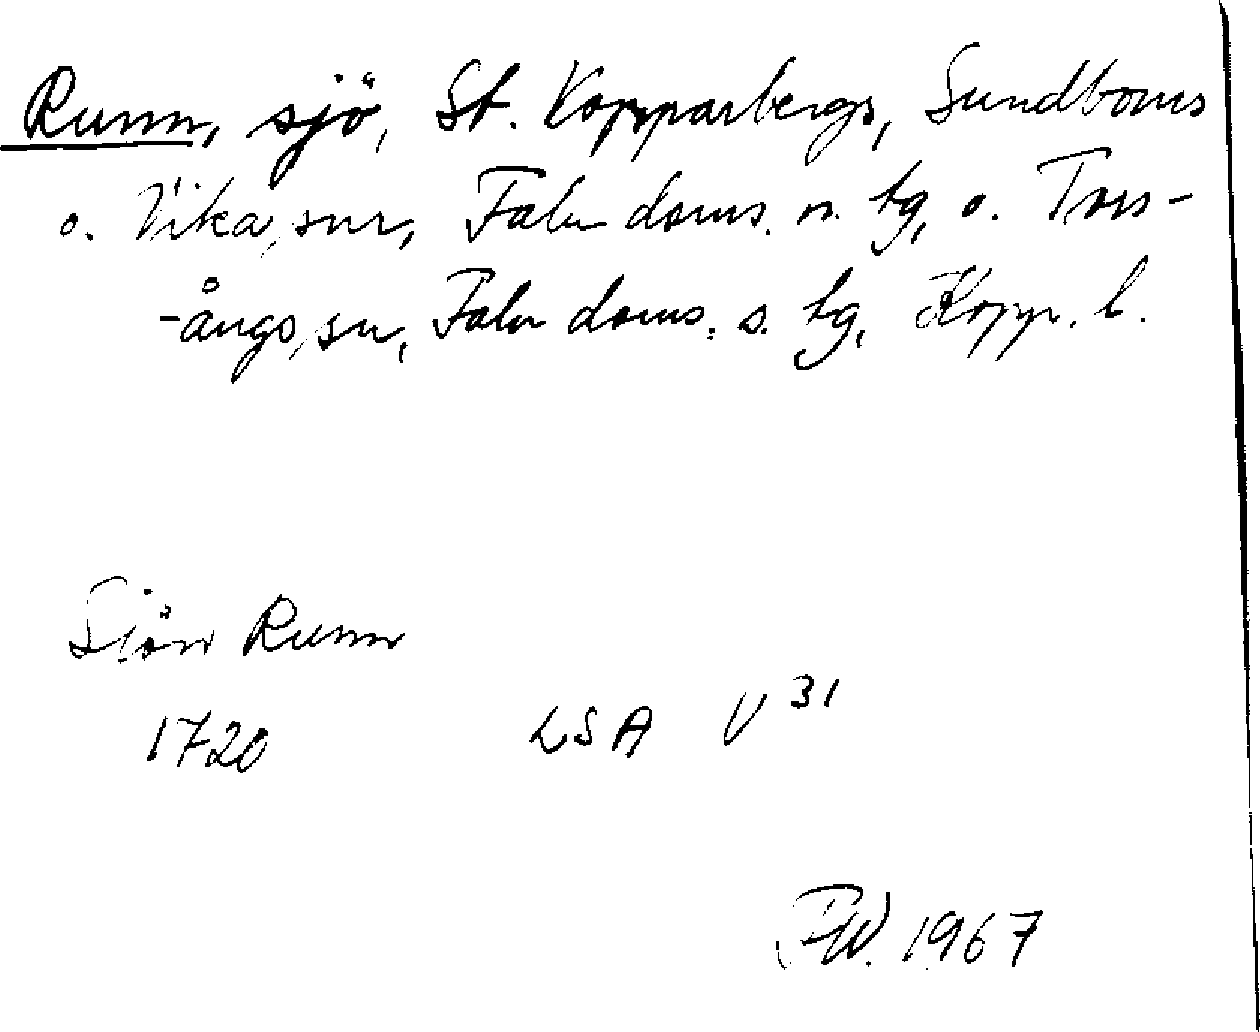 Runn, sjö, St. Kopparbergs, Sundborns
o. Vika snr, Falu doms. n. tg, o. Tors-
-ångs sn, Falu doms. s. tg, Kopp. l.
Siön Runn
1720 LSA U 31
1967